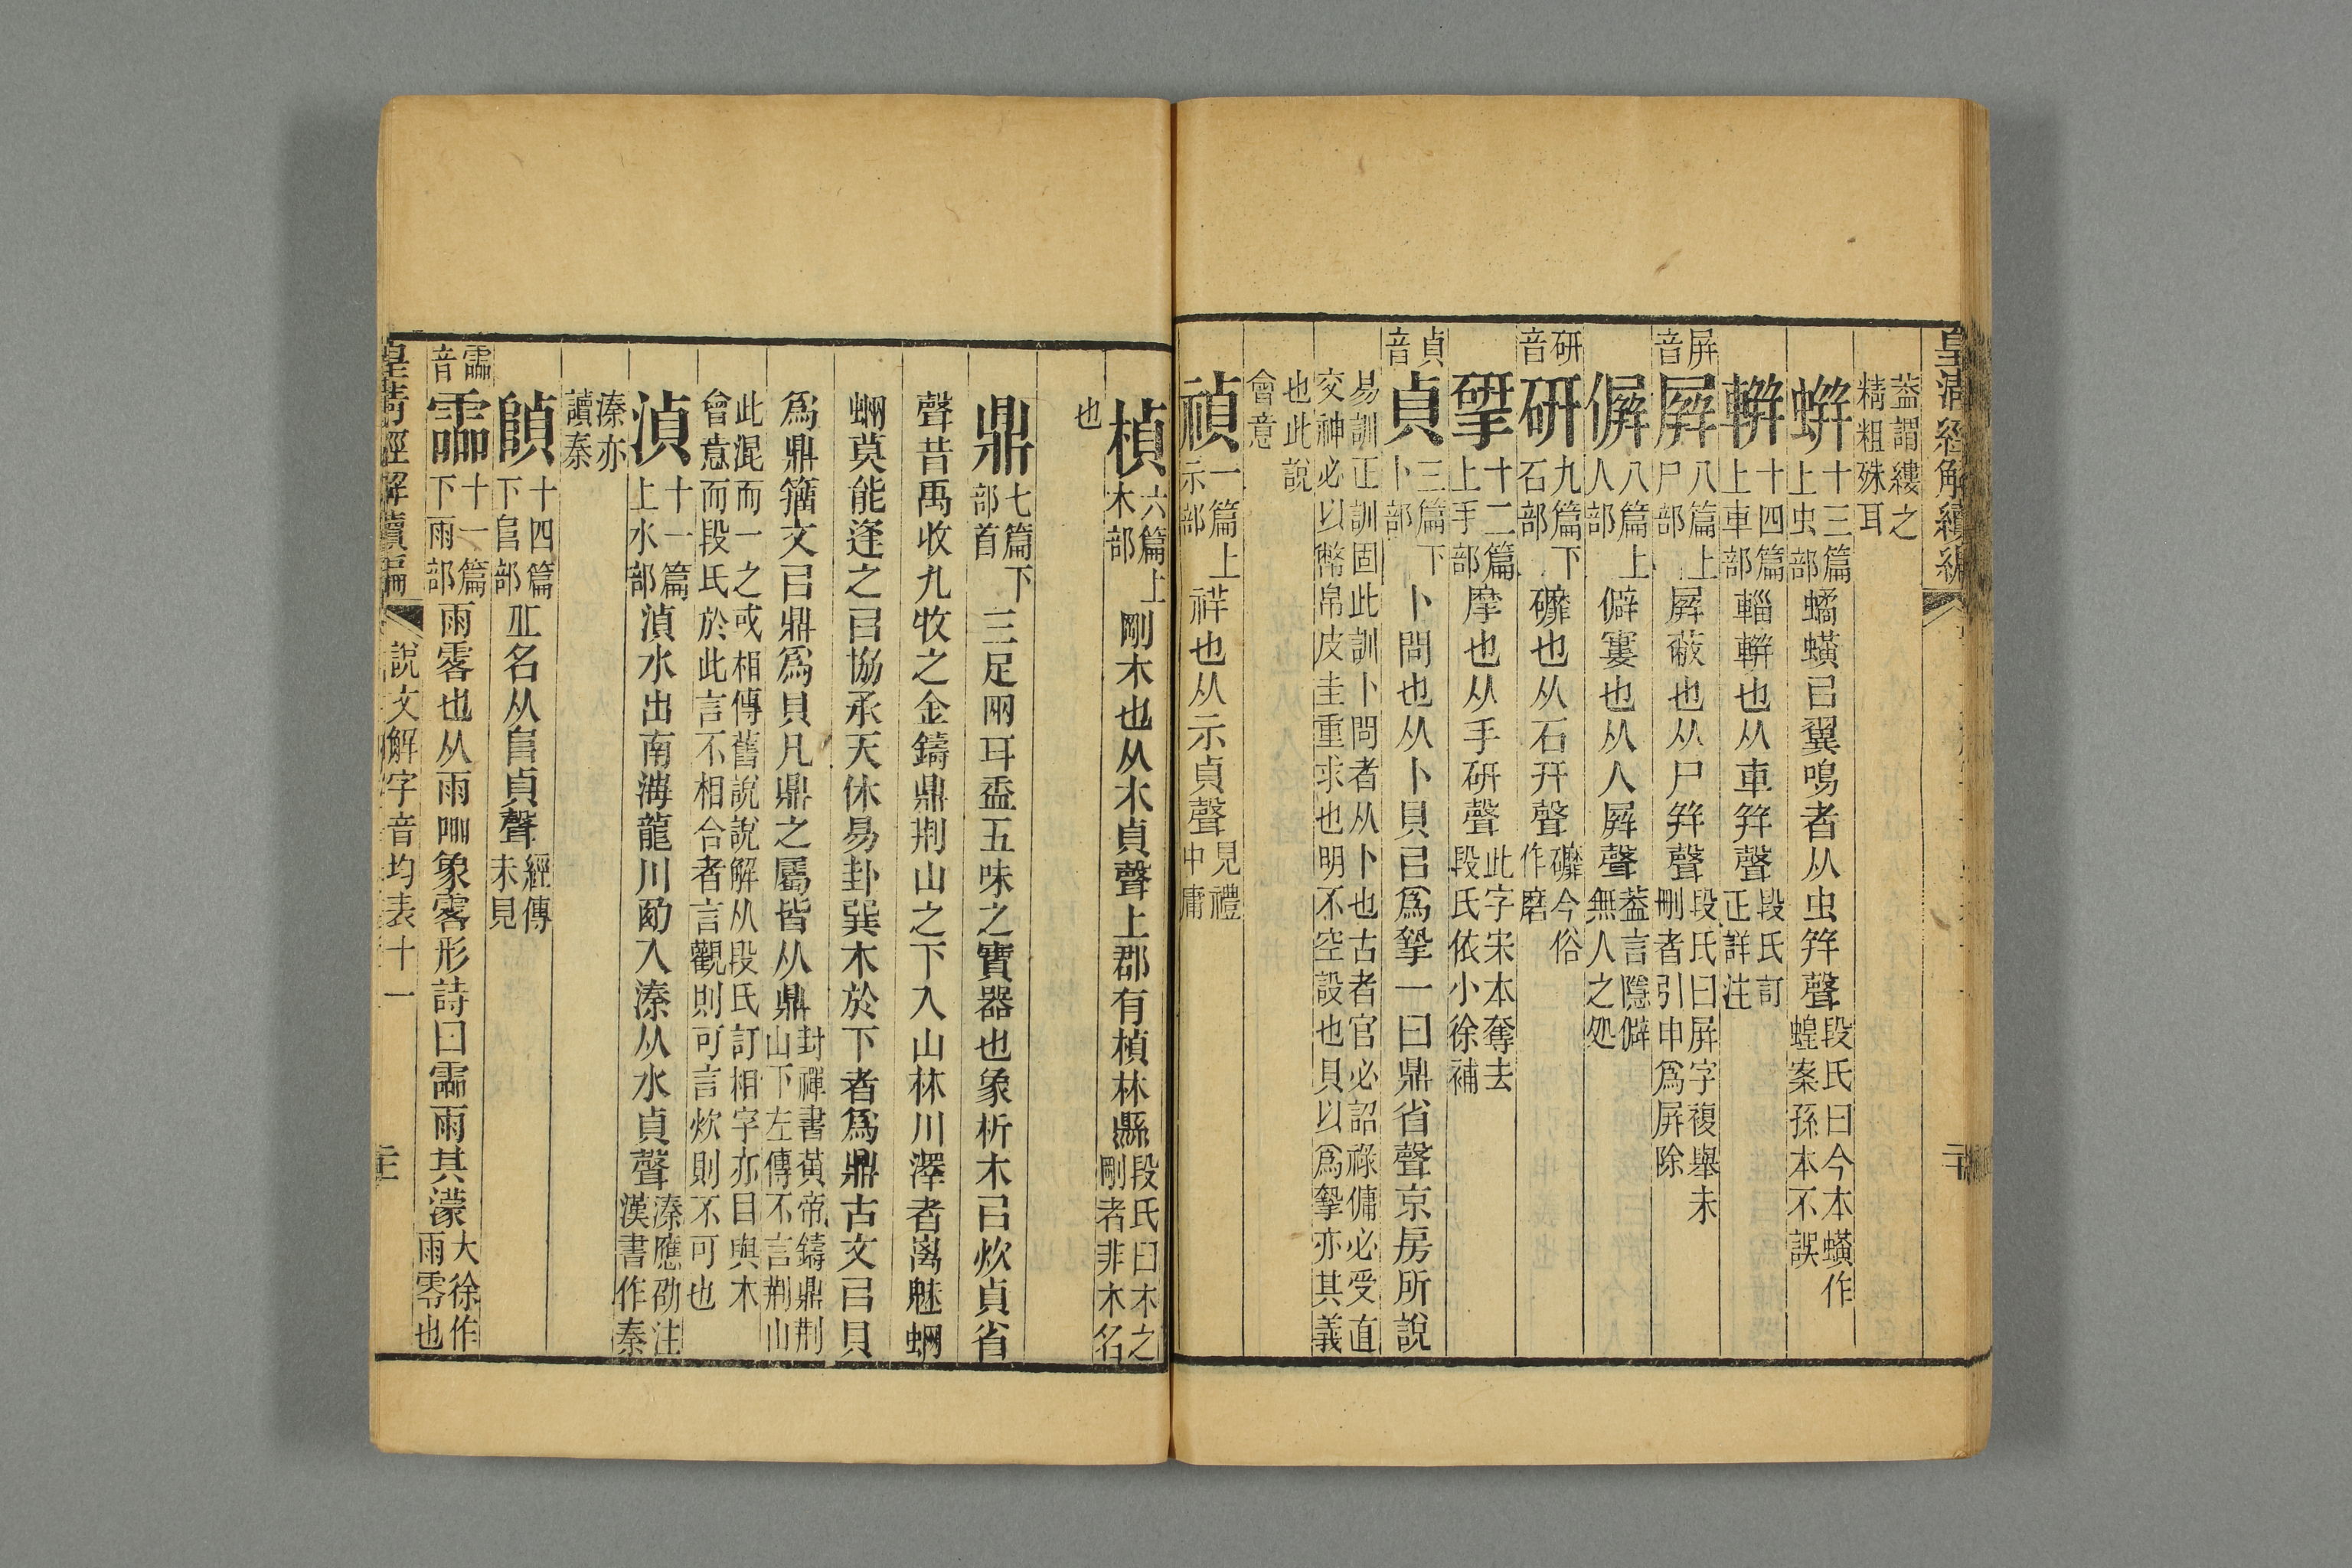 皇淸經解續編
蓋謂縷之
精粗殊耳
蛢十三篇上虫部蟠蟥㠯翼鳴者从虫幷聲段氏曰今本蟥作蝗案孫本不誤
軿十四篇上車部輜軿也从車幷聲段氏訂正詳注
屛音屛八篇上尸部屛蔽也从尸幷聲段氏曰屛字複舉未刪者引申爲屛除
偋八篇上人部僻寠也从人屛聲蓋言隱僻無人之処
研音研九篇下石部䃺也从石幵聲䃺今俗作磨
揅十二篇上手部摩也从手研聲此字宋本奪去段氏依小徐補
貞音貞三篇下卜部卜問也从卜貝㠯爲摯一曰鼎省聲京房所說
易訓正訓固此訓卜問者从卜也古者官必詔祿傭必受直
交神必以幣帛皮圭重求也明不空設也貝以爲摯亦其義
也此說
會意
禎一篇上示部祥也从示貞聲見禮中庸
楨六篇上木部剛木也从木貞聲上郡有楨林縣段氏曰木之剛者非木名
也
鼎七篇下部首三足兩耳盉五味之寶器也象析木㠯炊貞省
聲昔禹收九牧之金鑄鼎荆山之下入山林川澤者离魅蜽
蜽莫能逢之㠯協承天休易卦巽木於下者爲鼎古文㠯貝
爲鼎籒文㠯鼎爲貝凡鼎之屬皆从鼎封禪書黃帝鑄鼎荆山下左傳不言荆山
此混而一之或相傳舊說說解从段氏訂相字亦目與木
會意而段氏於此言不相合者言觀則可言炊則不可也
湞十一篇上水部湞水出南海龍川西入溱从水貞聲溱應劭注漢書作秦
溱亦
讀秦
隕十四篇下𨸏部丘名从𨸏貞聲經傳未見
霝音霝十一篇下雨部雨零也从雨𠱠象零形詩曰霝雨其濛大徐作雨零也
皇淸經解續編
說文解字音均表十一